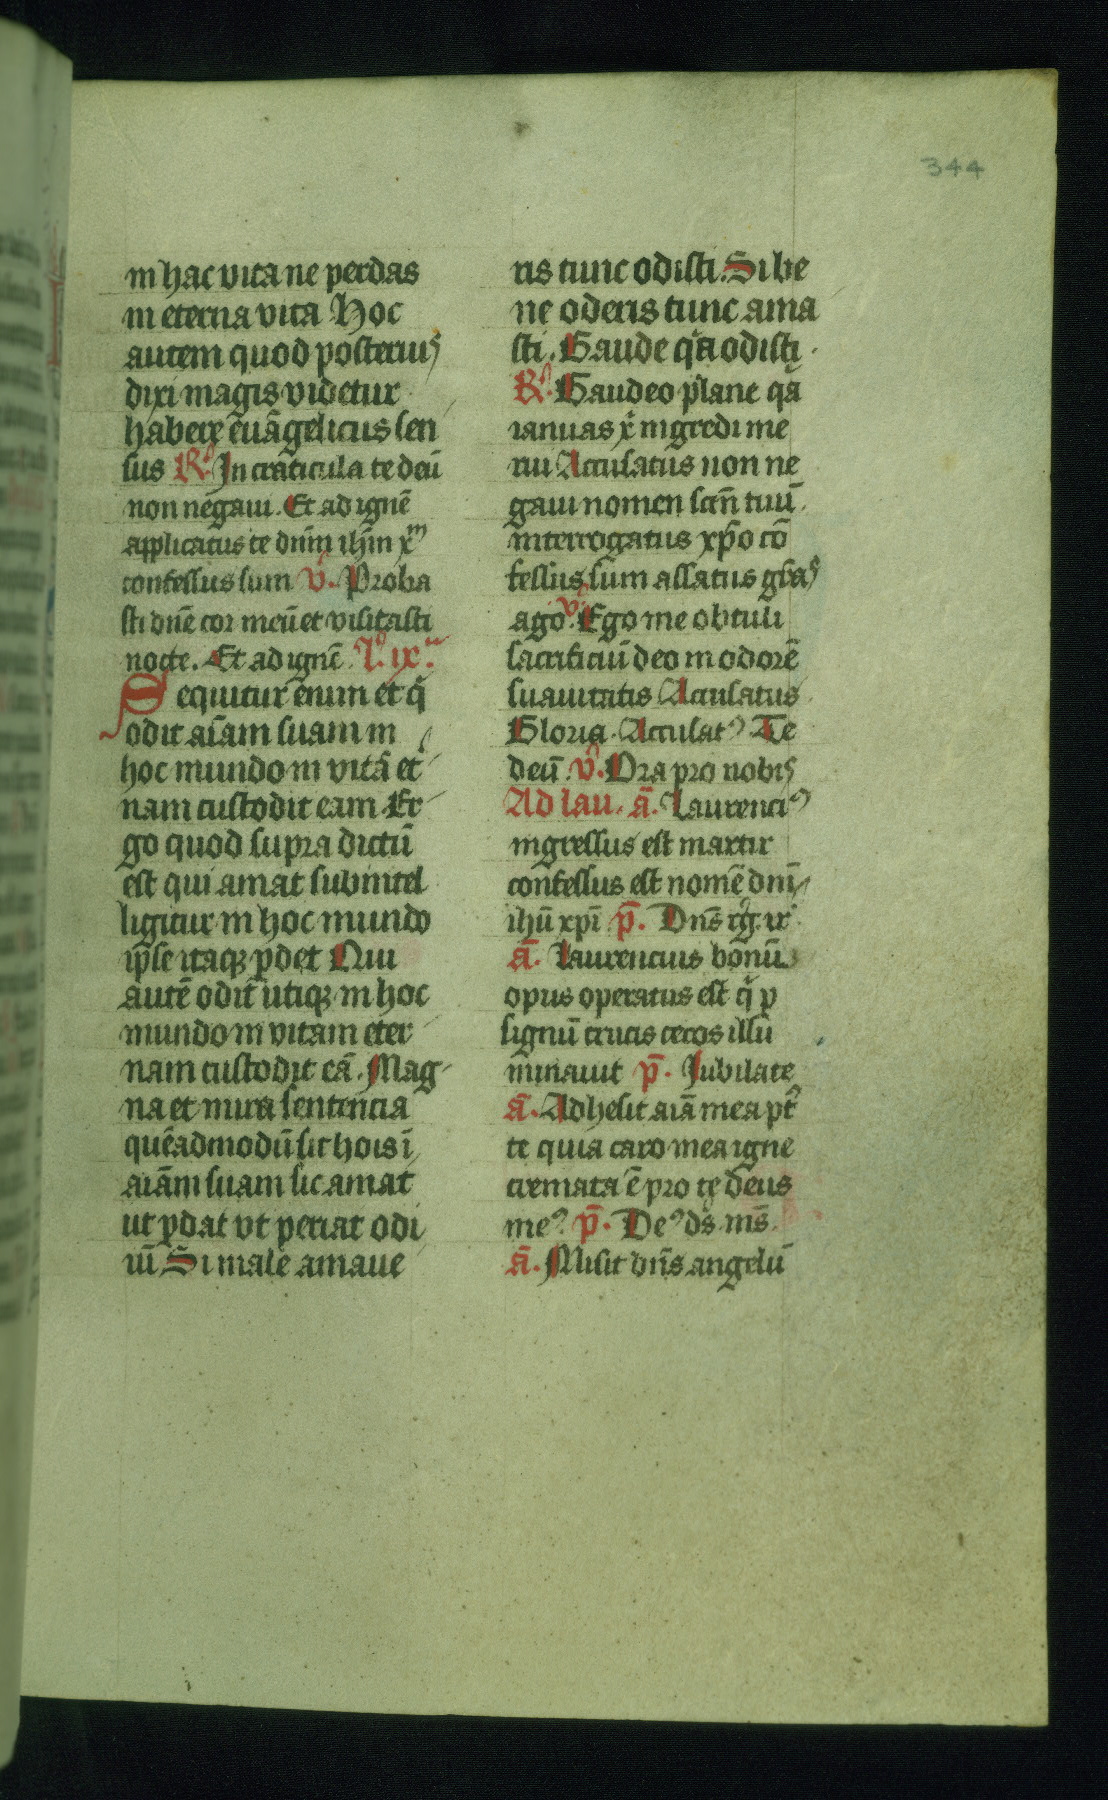 344
in hac vita ne perdas
in eterna vita Hoc
autem quod posteriꝰ
dixi magis videtur
habere euāgelicus sen
sus R̸ In craticula te deū
non negaui. Et ad ignē
applicatus te dn̄m ihm̄ xᵐ
confessus sum v̸. Proba
sti dn̄e cor meū et visitasti
nocte. Et ad ignē. L̊. ix.ᵃ
Sequitur enim et qͥ
odit aīam suam in
hoc mundo in vitā et
nam custodit eam Er
go quod supra dictū
est qui amat subintel
ligitur in hoc mundo
ip̄e itaqꝫ ꝑdet Qui
autē odit utiqꝫ in hoc
mundo in vitam eter
nam custodit eā. Mag
na et mira sentencia
quēadmodū sit hoīs ī
aīam suam sic amat
ut ꝑdat vt pereat odi
um Si male amaue
ris tunc odisti. Si be
ne oderis tunc ama
sti. Gaude qͣa odisti.
R̸. Gaudeo plane qͣa
ianuas xͥ ingredi me
rui Accusatus non ne
gaui nomen scm̄ tuū.
interrogatus xp̄o cō
fessus sum assatus gr̄as
ago. v̸ Ego me obtuli
sacrificiū deo in odorē
suauitatis Accusatus
Gloria. Accusatꝰ Te
deū. v̸. Ora pro nobis
Ad lau. ā. Laurenciꝰ
ingressus est martir
confessus est nomē dn̄i
ihū xp̄i p̄. Dn̄s rḡ. ir
ā. Laurencius bonū
opus operatus est qͥ ꝑ
signū crucis cecos illu
minauit p̄. Jubilate
ā. Adhesit aīa mea pꝰt
te quia caro mea igne
cremata ē pro te deus
meꝰ p̄. Deꝰ dꝰs mꝰs.
ā. Misit dn̄s angelū